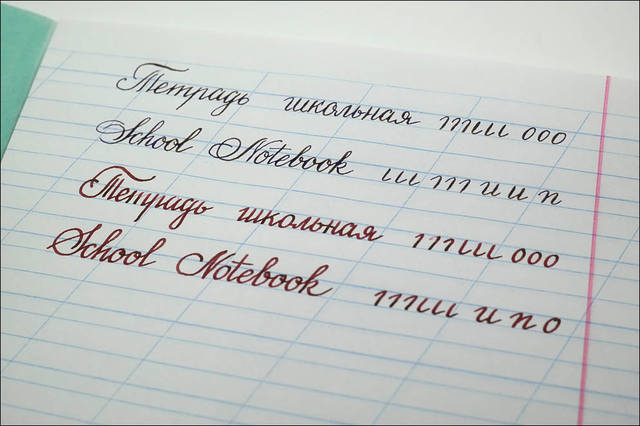 Тетрадь школьная ттии ооо
School Notebook ш т и и п
Тетрадь школьная ттии ооо
School Notebook ттии и п о